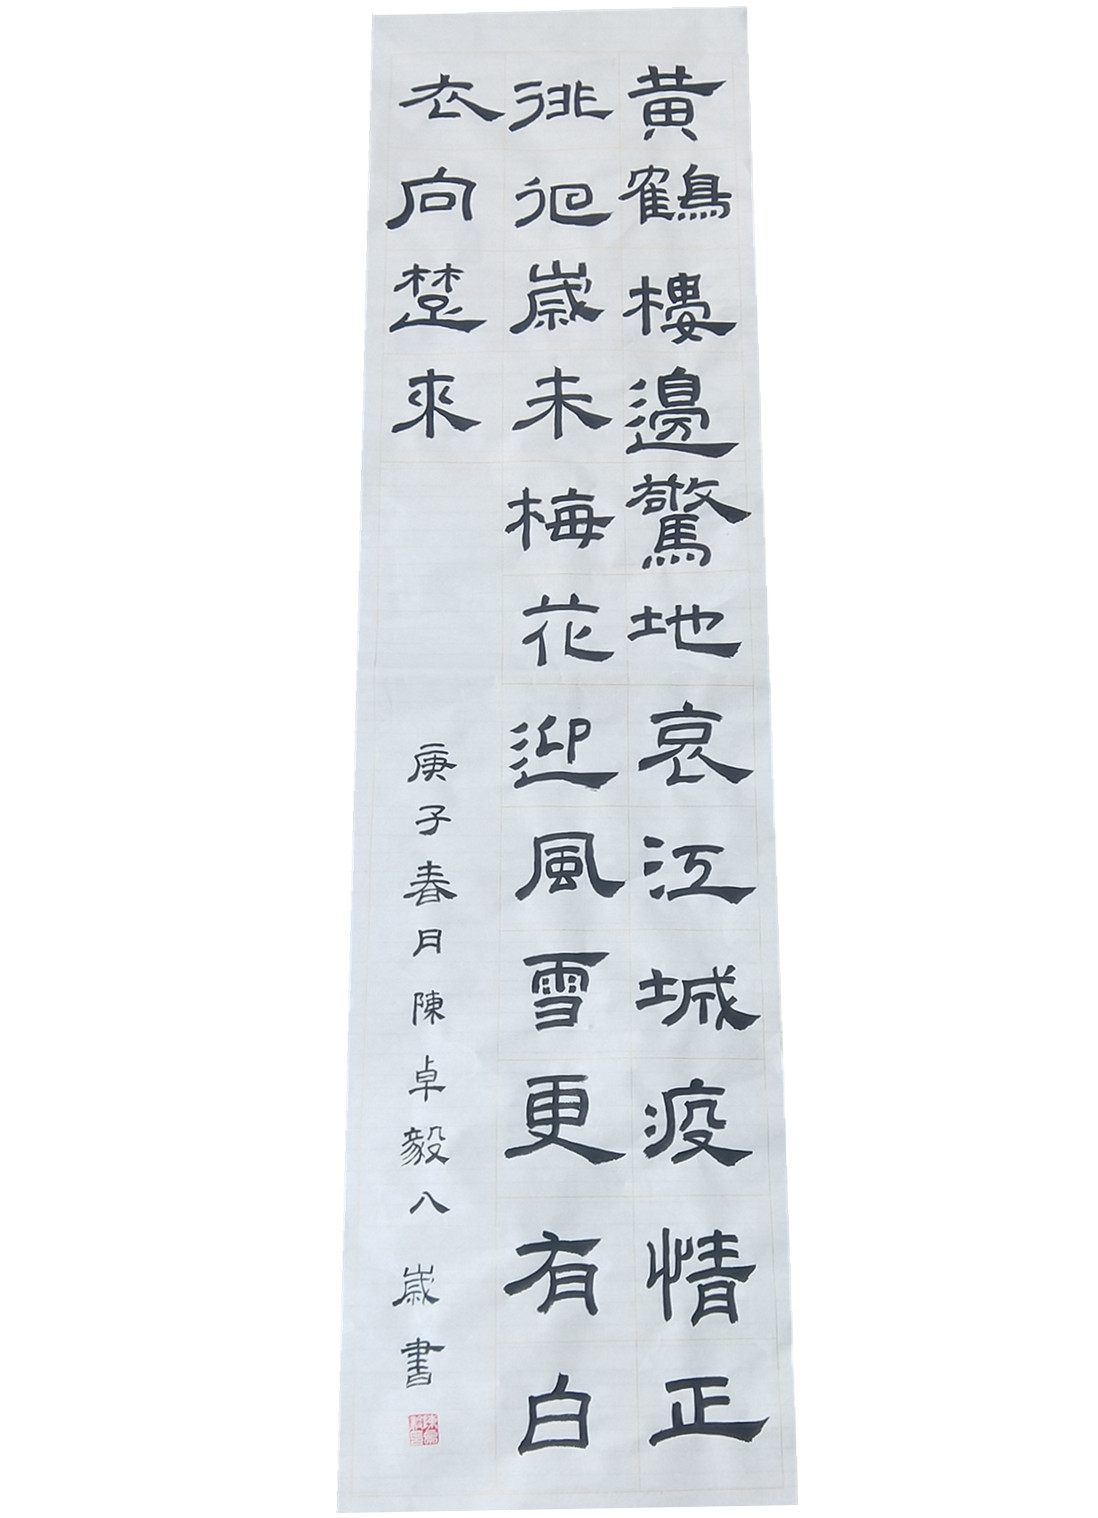 黄鶴樓邊驚地哀江城疫情正
徘徊歲未梅花迎風雪更有白
衣向楚來
庚子春月陳卓毅八歲書